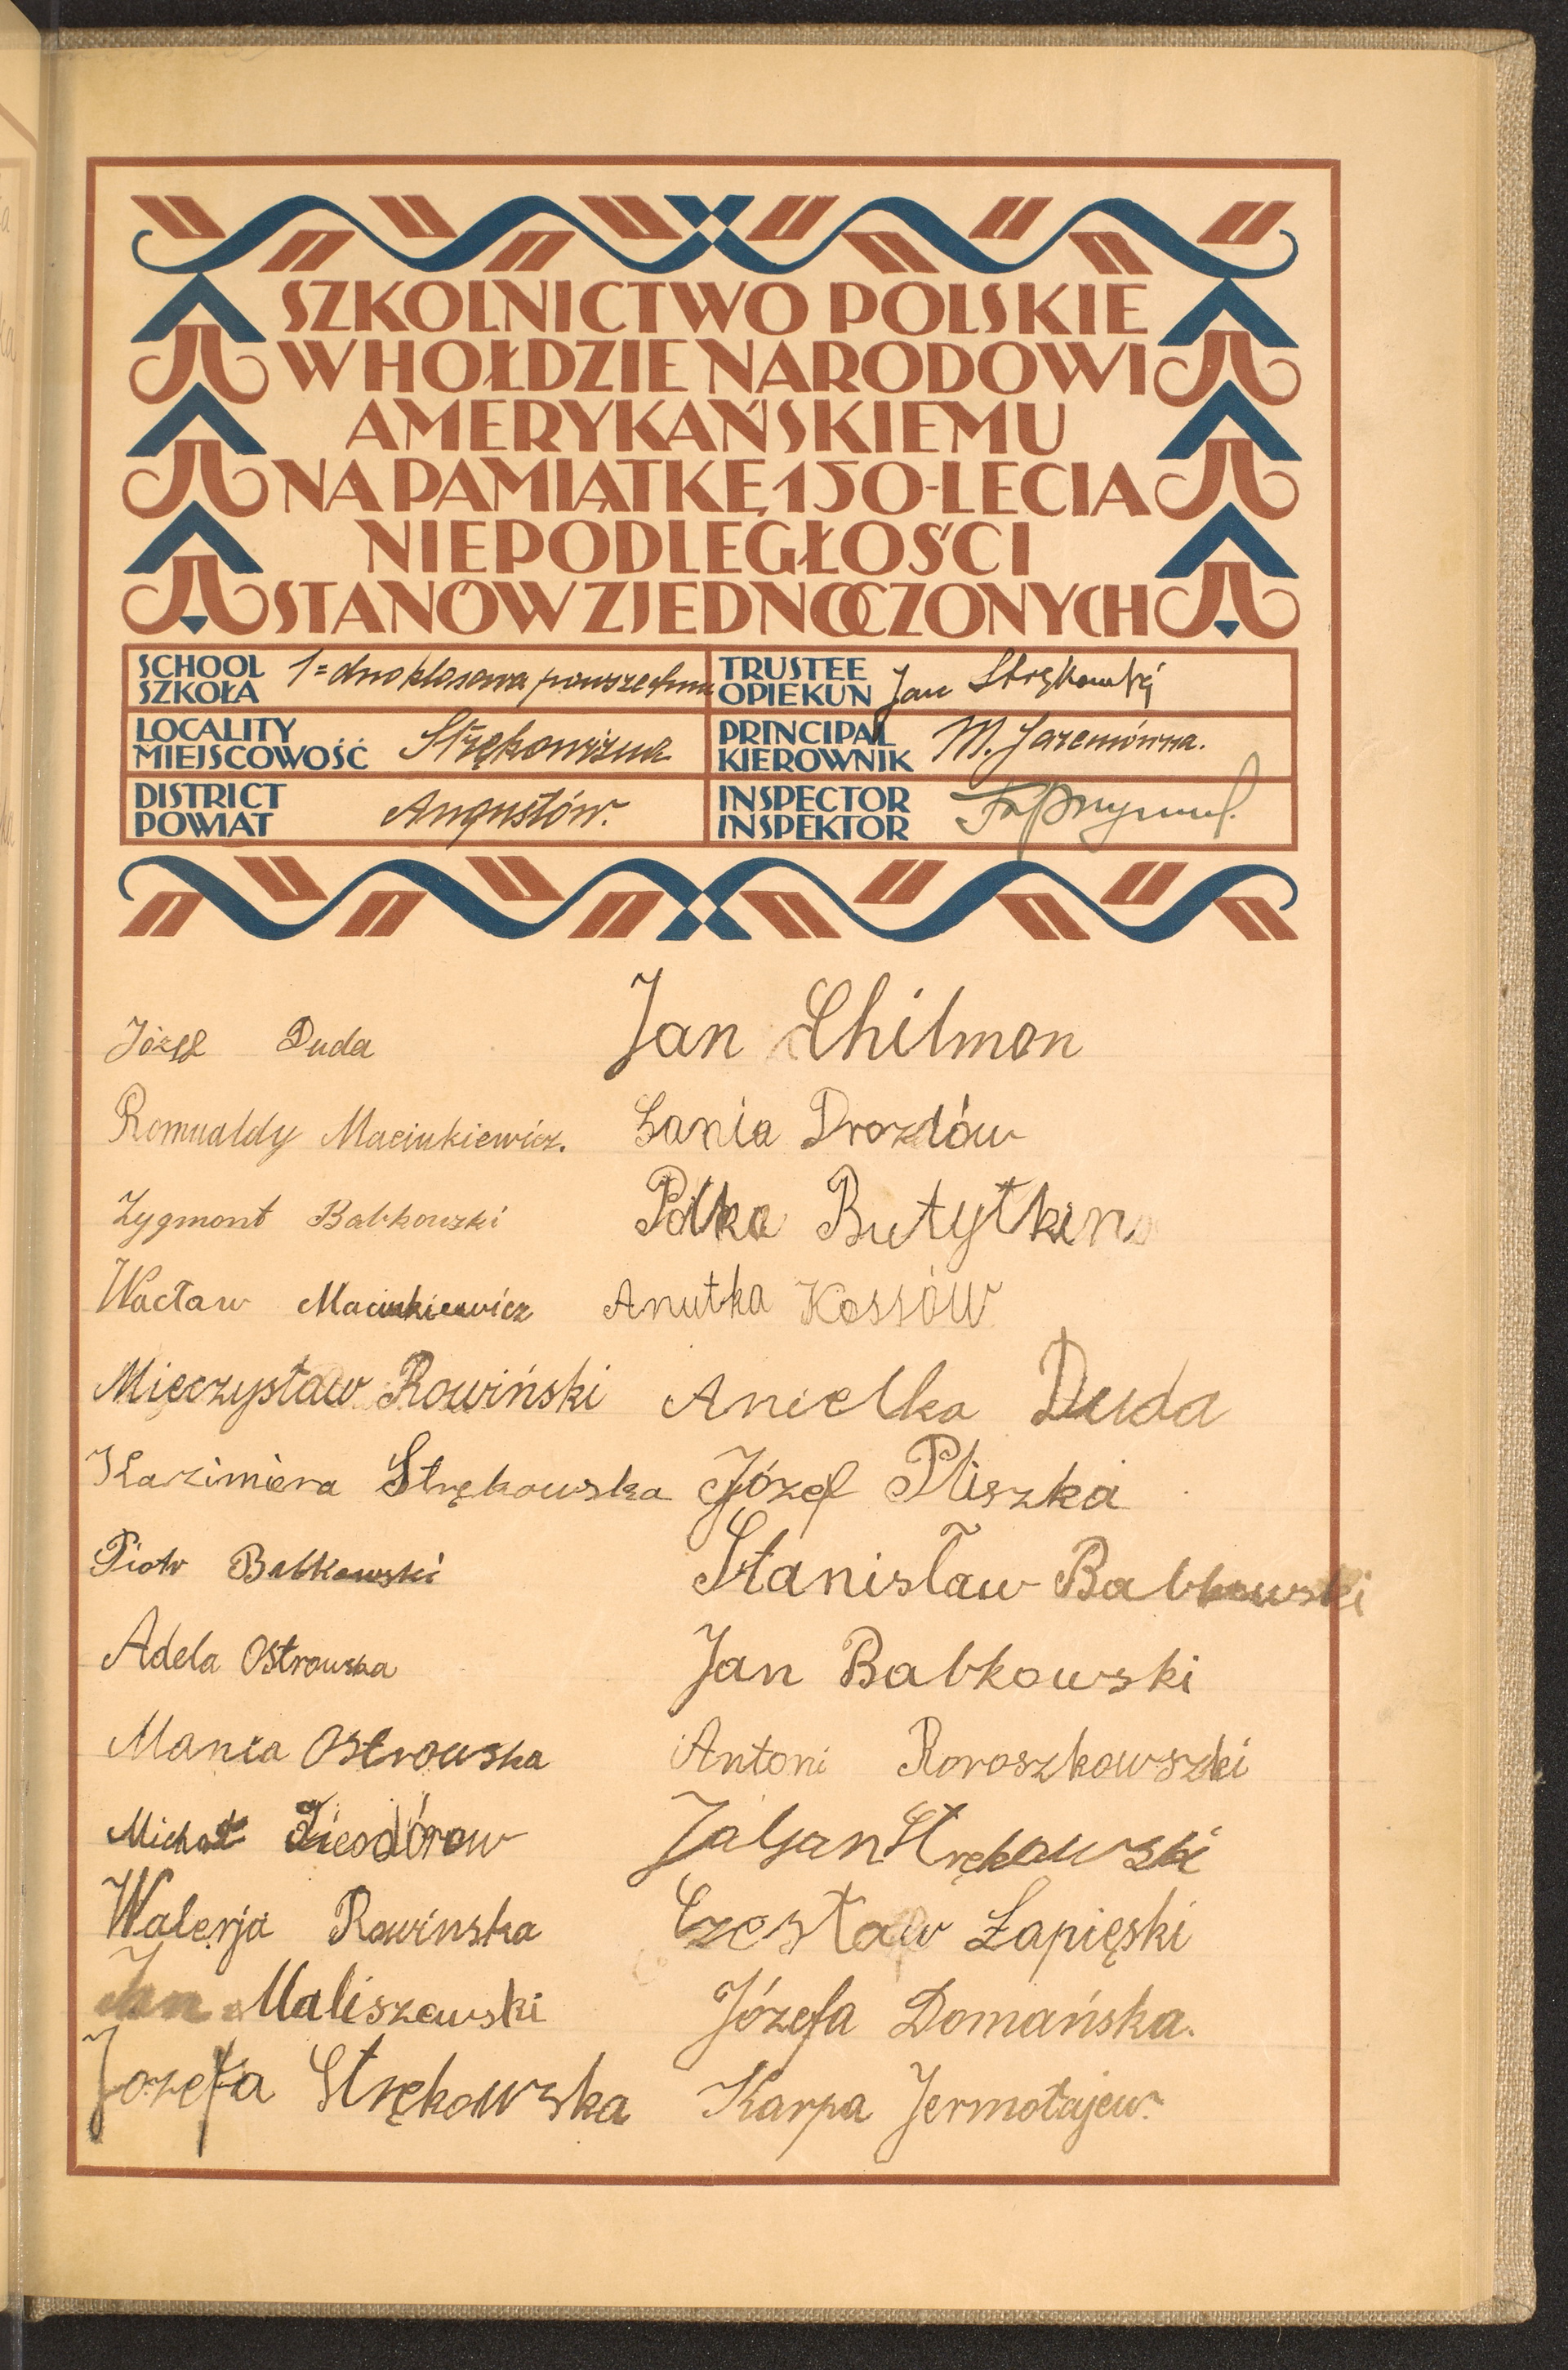 SZKOLNICTWO POLSKIE
W HOŁDZIE NARODOWI
AMERYKAŃSKIEMU
NA PAMIĄTKĘ 150-LECIA
NIEPODLEGŁOŚCI
STANÓW ZJEDNOCZONYCH
SCHOOL SZKOŁA 1=dnoklasowa powszechna
TRUSTEE OPIEKUN Jan Strękowski
LOCALITY MIEJSCOWOŚĆ Strękowizna
PRINCIPAL KIEROWNIK M. Jaremówna.
DISTRICT POWIAT Augustów.
INSPECTOR INSPEKTOR
Józef Duda
Romualdy Maciukiewicz.
Zygmont Babkowzki
Wacław Maciukiewicz
Mieczysław Rowiński
Kazimiera Strękowska
Piotr Babkowski
Adela Ostrowska
Mania Ostrowska
Michał
Walerja Rowinska
Jan Maliszewski
Jozefa Strękowska
Jan Chilmon
Drozdów
Butytkin
Anutka Kossów
Anielka Duda
Józef Pliszka
Stanisław Babkowski
Jan Babkowski
Antoni Roroszkowszki
Strękowski
Czesław Łapięski
Józefa Domańska.
Karpa Jermołajew.